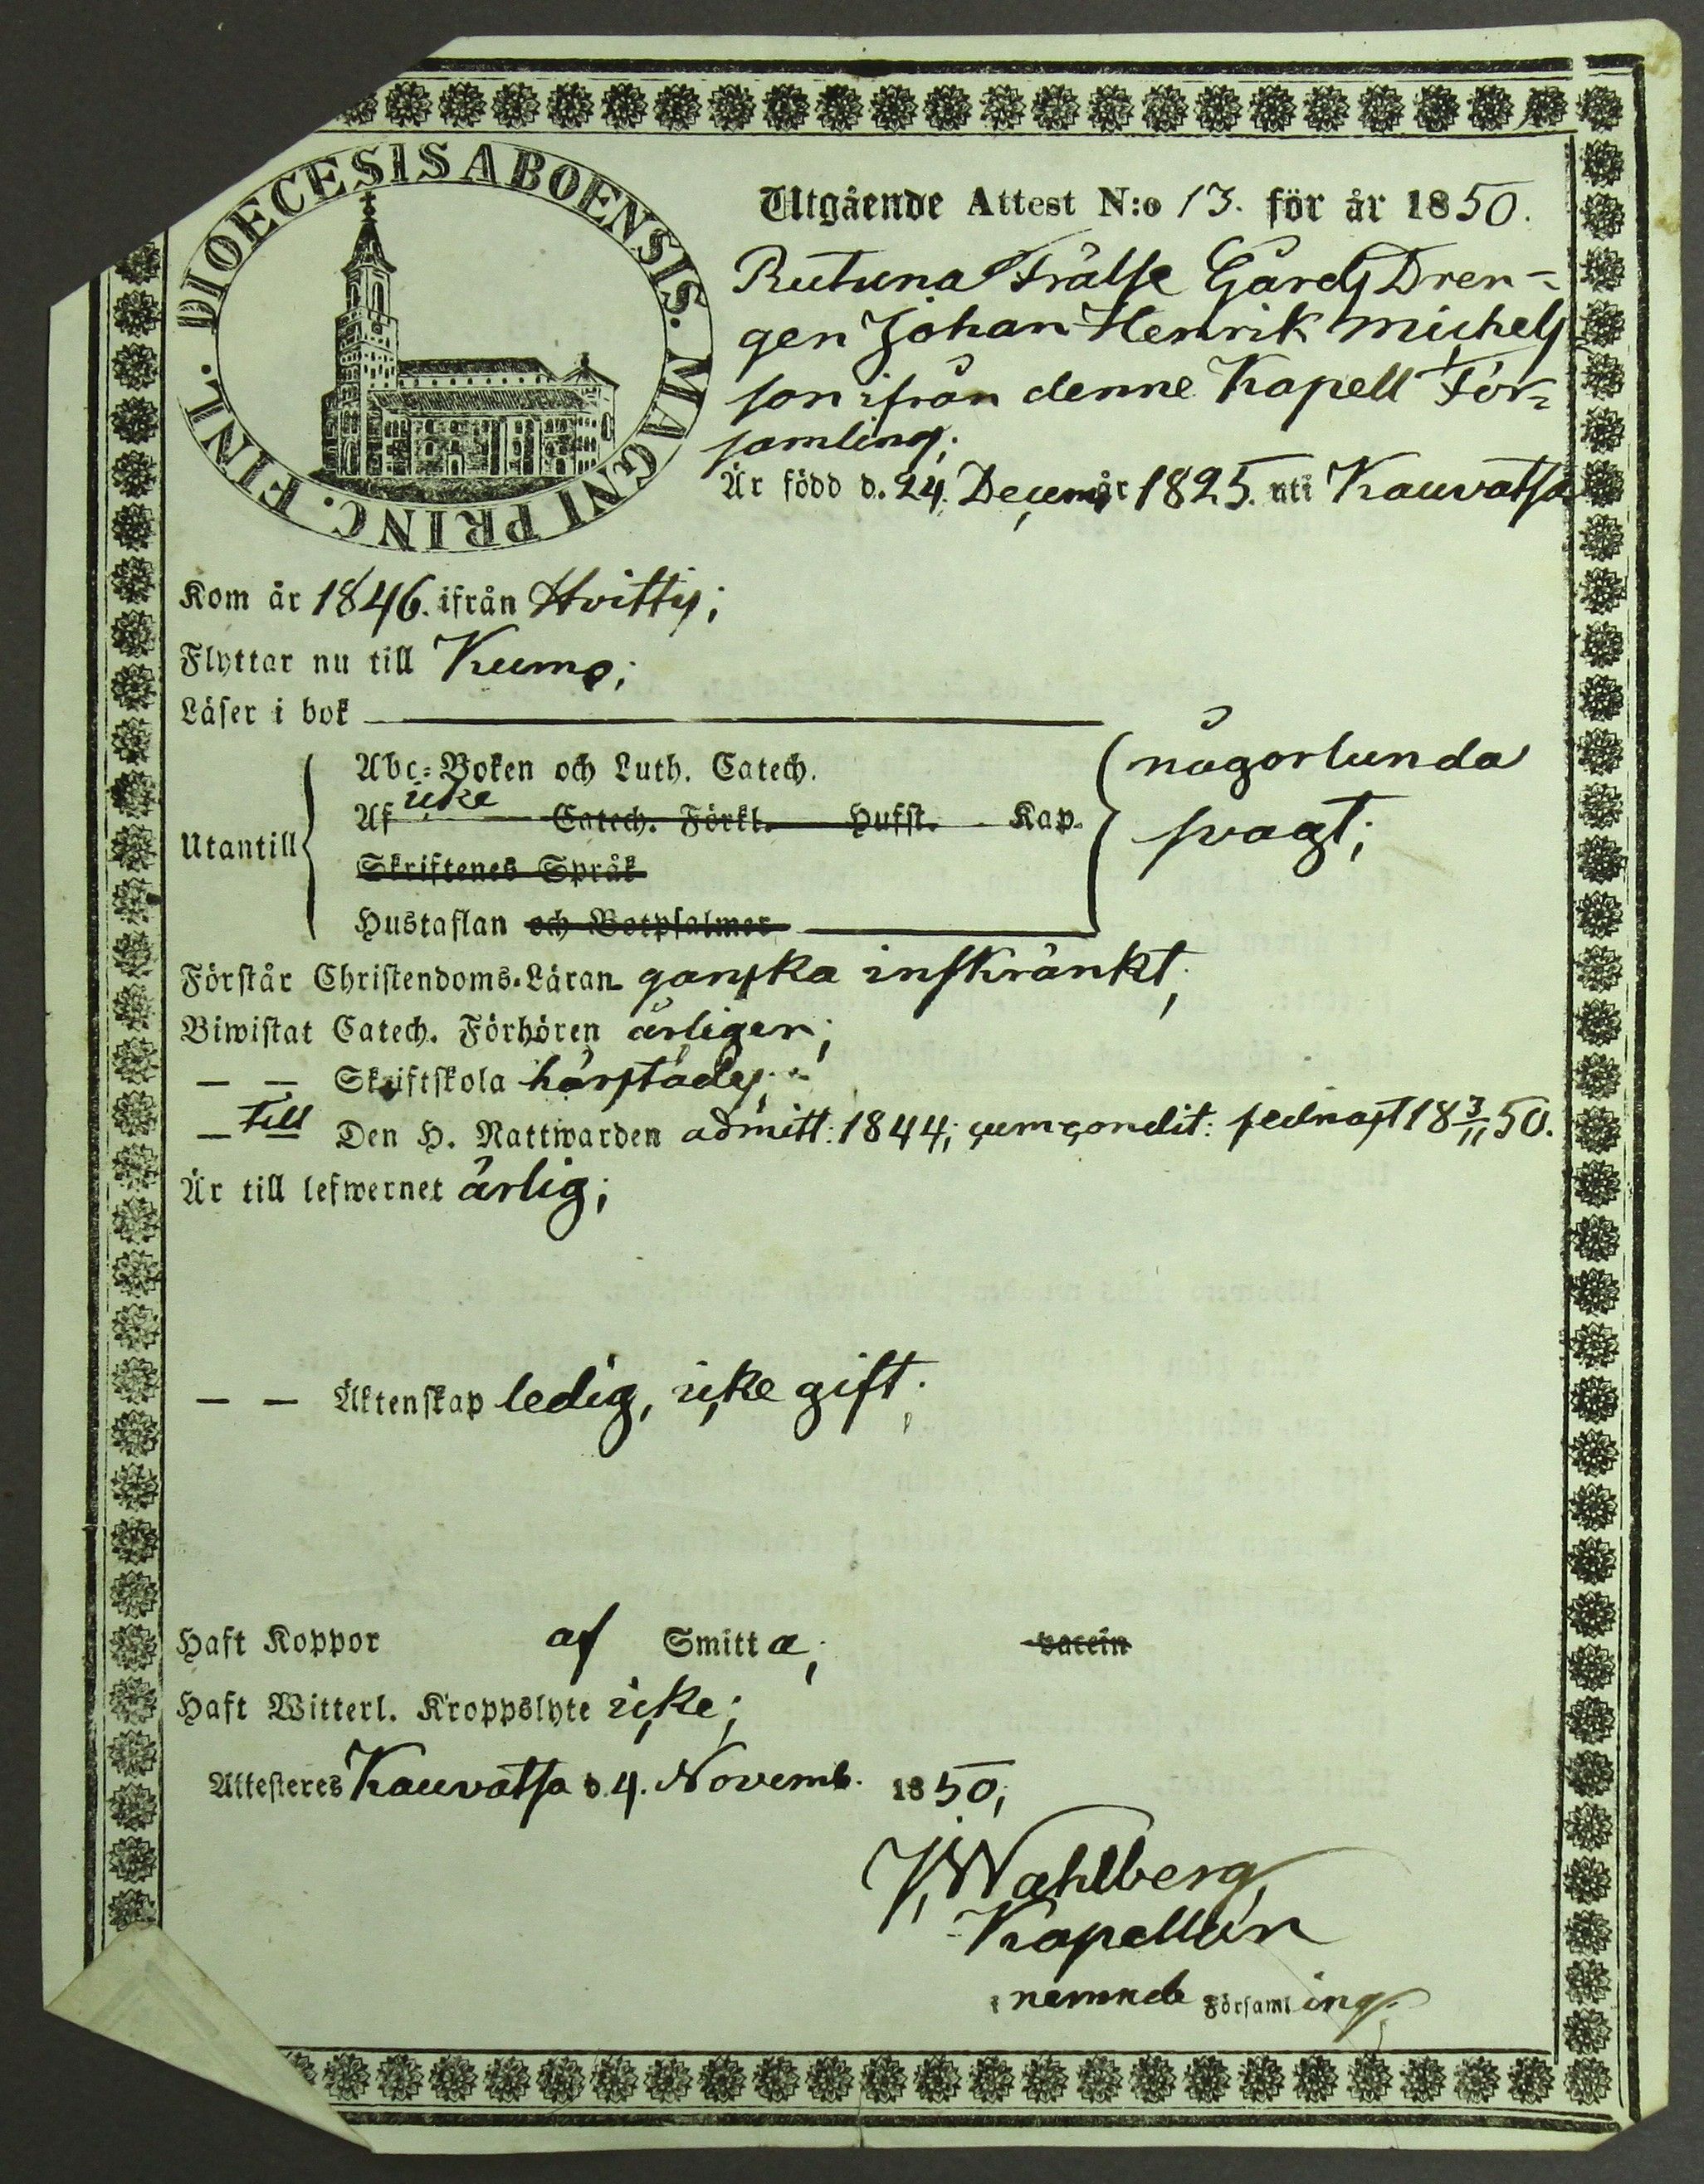 DIOECESIS ABOENSIS. MAGNI PRINC. FINL.
Utgående Attest N:o 13. för år 1850.
Rutuna Frälse Gårds Dren-
gen Johan Henrik Michels
son ifrån denne Kapell För-
samling;
Är född d. 24. Decemb år 1825. uti Kauvatsa
Kom år 1846. ifrån Hvittis;
Flyttar nu till Kumo;
Läser i bok
Utantill
Abc-Boken och Luth. Catech.
någorlunda
Af icke Catech. Förkl. Hufst. Kap.
svagt;
Skriftenes Språk
Hustaflan och Botpsalmer
Förstår Christendoms-Läran ganska inskränkt;
Biwistat Catech. Förhören årligen;
— — Skriftskola härstädes;
— till Den H. Nattwarden admitt: 1844; cum condit: sednast 18 3/11 50.
Är till lefwernet ärlig;
— — Äktenskap ledig, icke gift.
Haft Koppor af Smitta; vaccin
Haft Witterl. Kroppslyte icke;
Attesteres Kauvatsa d. 4. Novemb. 1850;
J. Wahlberg
Kapellan
i nämnde Församling.